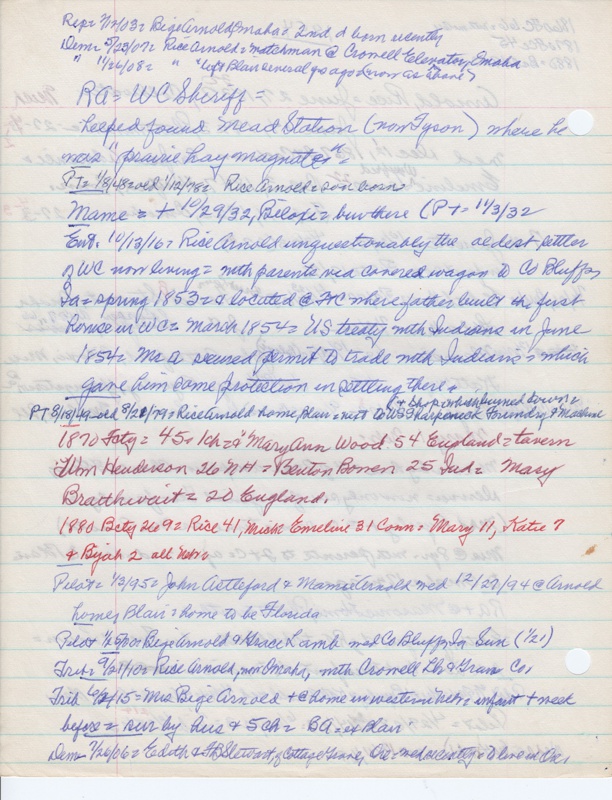 Rep = 7/17/03 = Bige Arnold, Omaha = 2nd d born recently
Dem = 5/23/07 = Rice Arnold = watchman @ Crowell Elevator, Omaha
" 11/26/08 = " " left Blair several yrs ago
RA = WC Sheriff =
helped found Mead Station (now Tyson) where he
was "prairie hay magnate" =
PT = 1/8/48 = old 1/12/78 = Rice Arnold = son born =
Mame = + 10/29/32, Biloxi = bur there (PT = 11/3/32
Ent. 10/13/16 = Rice Arnold unquestionably the oldest settler
of WC now living = with parents via covered wagon to Co Bluffs
Ia = spring 1853 = & located @ FtC where father built the first
house in WC = March 1854 = US treaty with Indians in June
1854 = Mr A secured permit to trade with Indians = which
gave him some protection in settling there =
+ shop which burned down =
PT 8/18/49 = old 8/21/79 = Rice Arnold home, Blair = next to Foundry & Machine
1870 Fotg = 45 = 1ch = & Mary Ann Wood 54 England = tavern
Wm Henderson 26 NH = Benton Bowen 25 Ind = Mary
Bratthwait = 20 England.
1880 Bctg 269 = Rice 41, Mich = Emeline 31 Conn = Mary 11, Katie 7
& Bijah 2 all Neb =
Pilot = 1/3/95 = John Astleford & Mamie Arnold wed 12/27/94 @ Arnold
home, Blair = home to be Florida
Pilot Bige Arnold & Grace Lamb wed Co Bluffs, Ia Sun (1/21)
Trib = 9/21/10 = Rice Arnold, now Omaha, with Crowell Lb & Grain Co,
Trib 6/2/15 = Mrs Bige Arnold + @ home in western Neb = infant + week
before = sur by hus & 5 ch = BA = ex Blair
Dem 7/26/06 = Edith & Stewart, of Cottage Grove, Ore = wed recently = to live in Ore